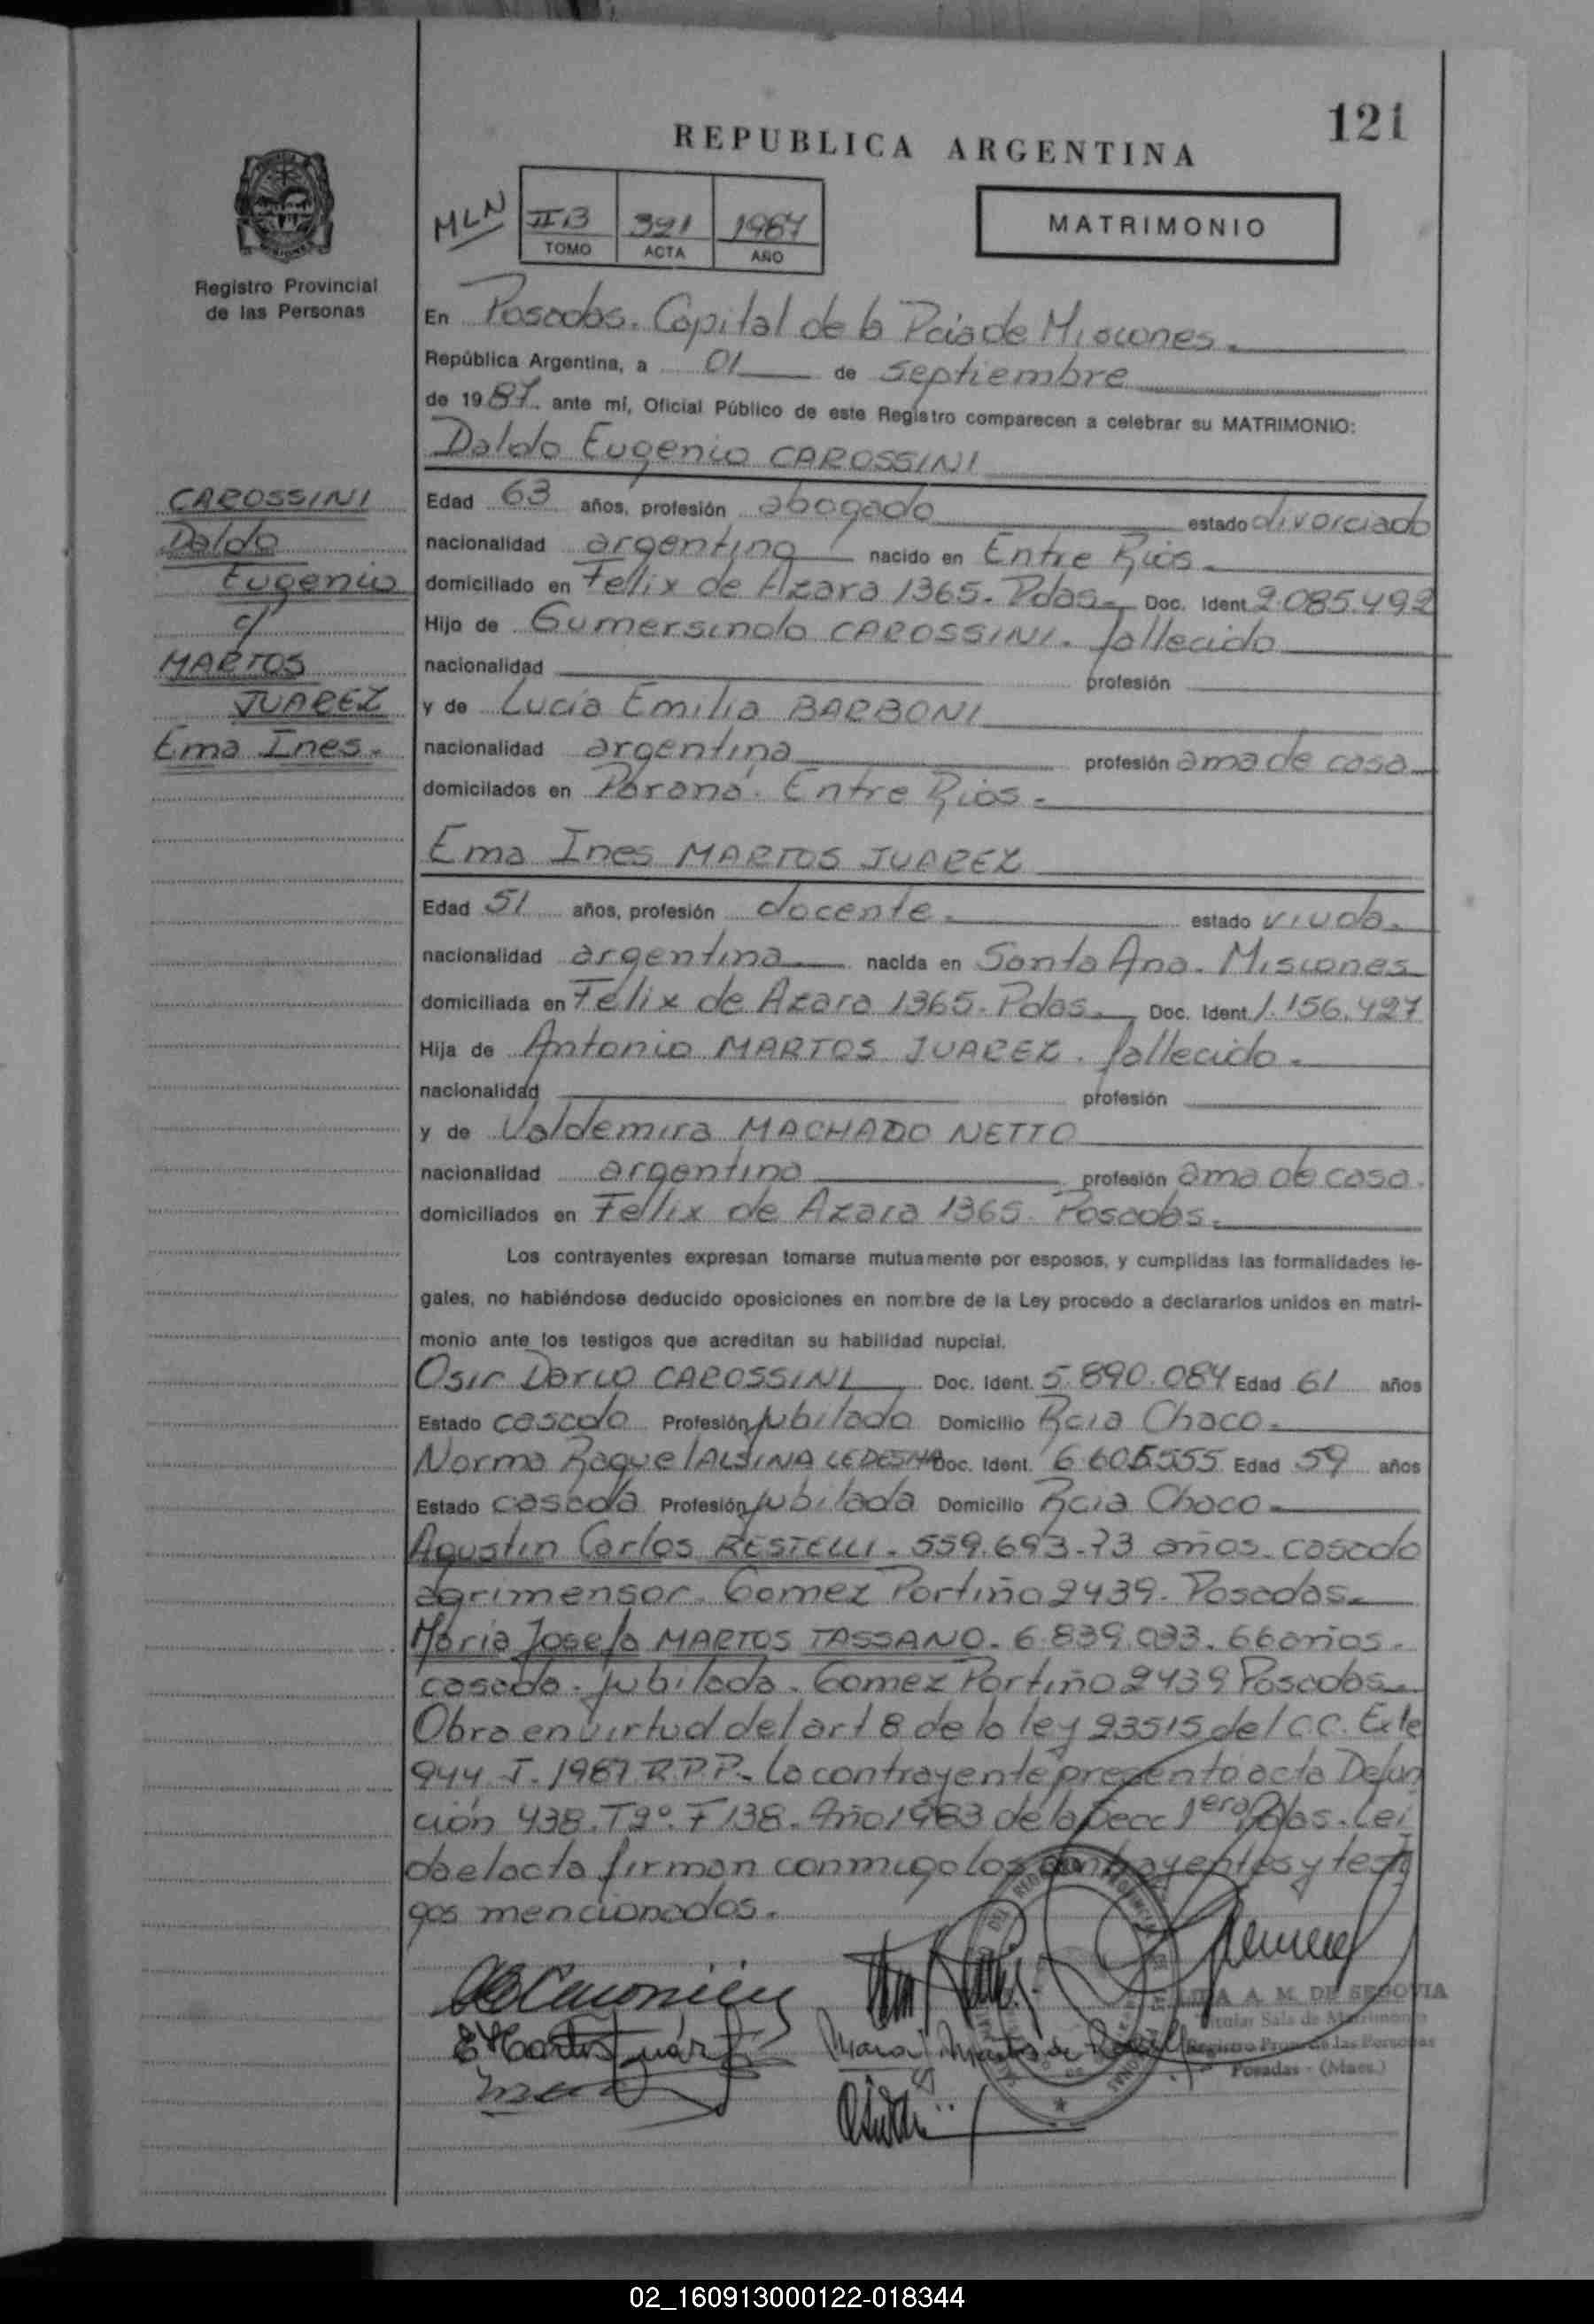 121
REPUBLICA ARGENTINA
MLN
II B 391 1987
TOMO ACTA AÑO
MATRIMONIO
Registro Provincial
de las Personas
En Posadas. Capital de la Pcia de Misiones.
República Argentina, a 01 de septiembre
de 1987 ante mí, Oficial Público de este Registro comparecen a celebrar su MATRIMONIO:
Daldo Eugenio CAROSSINI
CAROSSINI
Daldo
Eugenio
c/
MARTOS
JUAREZ
Ema Ines.
Edad 63 años, profesión abogado estado divorciado
nacionalidad argentina nacido en Entre Rios.
domiciliado en Felix de Azara 1365. Pdas. Doc. Ident. 2.085.492
Hijo de Gumersindo CAROSSINI. fallecido
nacionalidad profesión
y de Lucía Emilia BARBONI
nacionalidad argentina profesión ama de casa
domicilados en Paraná. Entre Rios.
Ema Ines MARTOS JUAREZ
Edad 51 años, profesión docente. estado viuda.
nacionalidad argentina nacida en Santa Ana. Misiones
domiciliada en Felix de Azara 1365. Pdas. Doc. Ident. 1.156.427
Hija de Antonio MARTOS JUAREZ. fallecido.
nacionalidad profesión
y de Valdemira MACHADO NETTO
nacionalidad argentina profesión ama de casa.
domiciliados en Felix de Azara 1365. Posadas.
Los contrayentes expresan tomarse mutuamente por esposos, y cumplidas las formalidades le-
gales, no habiéndose deducido oposiciones en nombre de la Ley procedo a declararlos unidos en matri-
monio ante los testigos que acreditan su habilidad nupcial.
Osir Dario CAROSSINI Doc. Ident. 5.890.084 Edad 61 años
Estado casado Profesión jubilado Domicilio Rcia Chaco.
Norma Raquel ALSINA LEDESMA Doc. Ident. 6.605555 Edad 59 años
Estado casada Profesión jubilada Domicilio Rcia Chaco
Agustin Carlos RESTELLI. 559.693-73 años. casado
agrimensor. Gomez Portiño 2439. Posadas.
Maria Josefa MARTOS TASSANO. 6.839.033. 66 años.
casada. jubilada. Gomez Portiño 2439 Posadas
Obra en virtud del art 8 de la ley 23515 del C.C. Exte
944 I. 1987 R.P.P. La contrayente presentó acta Defun
ción 438. T2º. F 138. Año 1983 de la Secc 1era Pdas. Lei
da el acta firman conmigo los contrayentes y testi
gos mencionados.
E Martos Juárez
A. M. DE SEGOVIA
Titular Sala de Matrimonio
Registro Prov. de las Personas
Posadas - (Mnes.)
02_160913000122-018344